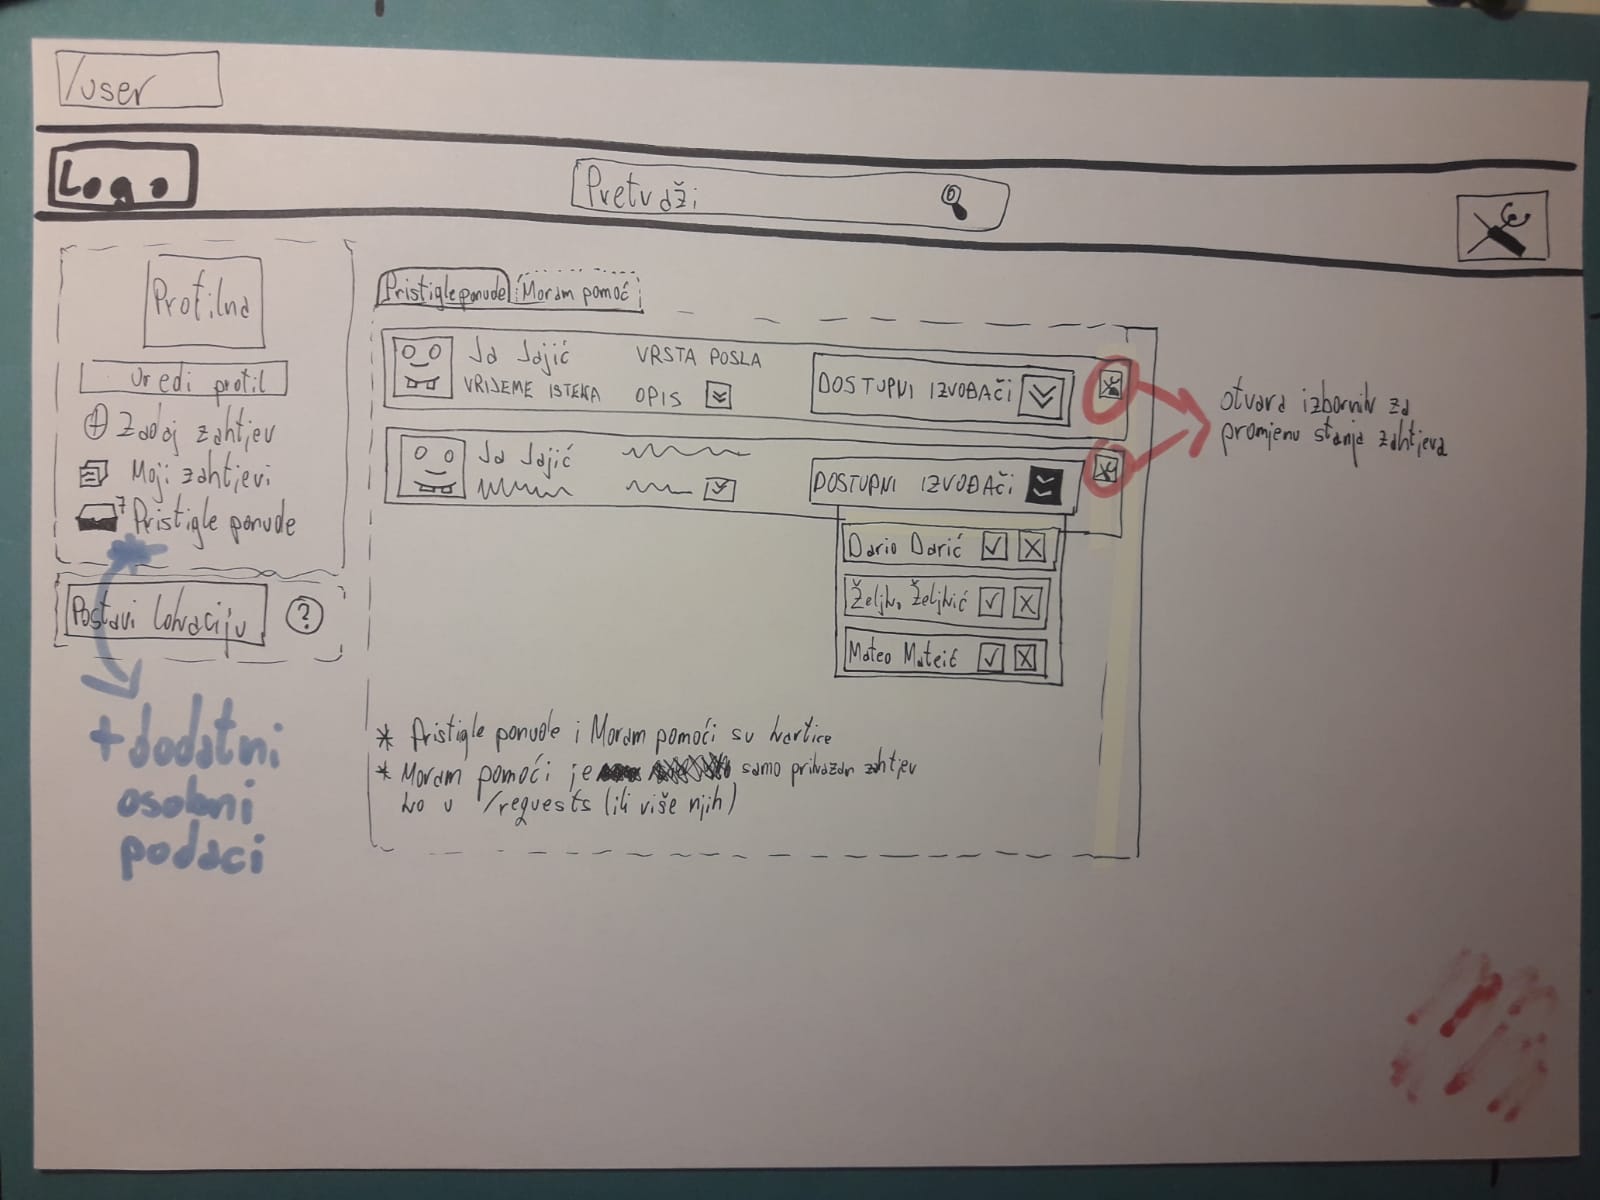 /user
Logo
Pretraži
Profilna
Uredi profil
Zadaj zahtjev
Moji zahtjevi
7 Pristigle ponude
Postavi lokaciju ?
+ dodatni
osobni
podaci
Pristigle ponude Moram pomoć
Ja Jajić VRSTA POSLA
VRIJEME ISTEKA OPIS
DOSTUPNI IZVOĐAČI
Ja Jajić
DOSTUPNI IZVOĐAČI
Dario Darić
Željko Željkić
Mateo Mateić
otvara izbornik za
promjenu stanja zahtjeva
* Pristigle ponude i Moram pomoći su kartice
* Moram pomoći je samo prikazan zahtjev
ko u /requests (ili više njih)